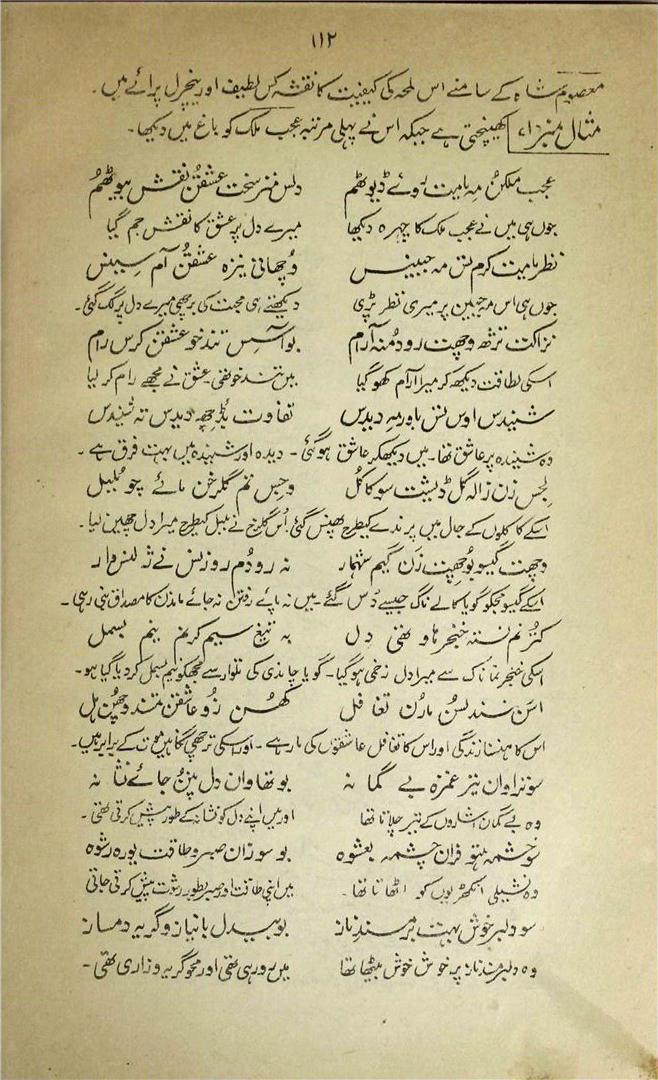 ۱۱۲
معصوم شاہ کے سامنے اس لمحہ کی کیفیت کا نقشہ کس لطیف اور نیچرل پرائے میں ۔
مثال نمبر ۱۰ کھینچتی ہے جبکہ اس نے پہلی مرتبہ عجب ملک کو باغ میں دیکھا ۔
عجب ملکن مہ یامت روے ڈیوٹھم دلس منز سخت عشقن نقش بیوٹھم
جوں ہی میں نے عجب ملک کا چہرہ دیکھا میرے دل پر عشق کا نقش جم گیا
نظر یامت کرم تس مہ جبینس وچھانی نیزہ عشقن آم سینس
جوں ہی اس مہ جبین پر میری نظر پڑی دیکھتے ہی محبت کی برچھی میرے دل پر لگ گئی ۔
نزاکت تژھ وچھت رودمنہ آرام بو آسس تند خو عشقن کرس رام
اسکی لطافت دیکھ کر میرا آرام کھو گیا میں تند خو تھی ۔ عشق نے مجھے رام کر لیا
شنیدس اوس تس باور مہ دیدس تفاوت بڈ چھہ دیدس تہ شنیدس
وہ شنیدہ پر عاشق تھا ۔ میں دیکھکر عاشق ہو گئی ۔ دیدہ اور شنیدہ میں بہت فرق ہے ۔
لجس زن زالہ گل ڈیشت سو کاکل وچس نم گلرخن مائے چو بلبل
اسکے کاکلوں کے جال میں پرندے کیطرح پھنس گئی اُس گلرخ نے بلبل کیطرح میرا دل چھین لیا ۔
وچھت گیسو بوچھپت زن گیم شہمار نہ رودم روزنس نے ژلنس وار
اسکے گیسو مجکو گویا کالے ناگ جیسے ڈس گئے ۔ میں نہ پائے رفتن نہ جائے ماندن کا مصداق بنی رہی ۔
کژنم نستہ خنجر ہاوتھی دل بہ تیغ سیم کرنم نیم بسمل
اسکی خنجر نما ناک سے میرا دل زخمی ہو گیا ۔ گویا چاندی کی تلوار سے مجھکو نیم بسمل کر دیا گیا ہو ۔
اسن سند لسن مارن تغافل کھسن زو عاشقن متند وچھن ہل
اس کا ہنسنا زندگی اور اس کا تغافل عاشقوں کی مار ہے ۔ اور اسکی ترچھی نگاہیں موت کے برابر ہیں ۔
سو تراوان تیر غمزہ بے گمانہ بو تھاوان دل پنن جائے نشانہ
وہ بے گمان اشاروں کے تیر چلاتا تھا اور میں اپنے دل کو نشانہ کے طور پیش کرتی تھی ۔
سو چشمہ ہتو فران چشمہ بعشوہ بو سوزان صبر و طاقت یورہ رشوہ
وہ نشیلی انکھڑیوں کو اٹھاتا تھا ۔ میں اپنی طاقت اور صبر بطور رشوت پیش کرتی جاتی
سو دلبر خوش بہت بر مسند ناز بو بیدل با نیاز و گریہ دمساز
وہ دلبر مسند ناز پر خوش خوش بیٹھا تھا میں رو رہی تھی اور محو گریہ و زاری تھی ۔